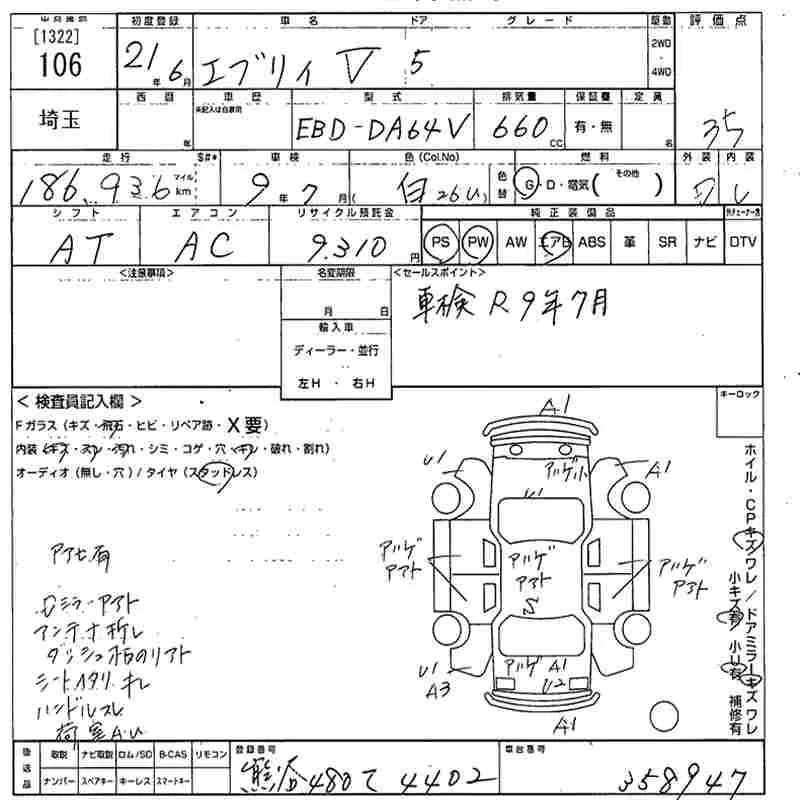 [1322]
106
埼玉
初度登録
21年 6月
車名
エブリィ V
ドア
5
グレード
駆動
2WD
・
4WD
評価点
35
西暦
年
車歴
未記入は自家用
型式
EBD-DA64V
排気量
660 CC
保証書
有・無
定員
名
走行
$#*
186,936 マイル km
車検
9年 7月(
色(Col.No)
白 26U)
色替
燃料
G・D・電気( その他 )
外装
内装
シフト
AT
エアコン
AC
リサイクル預託金
9,310円
純正装備品
PS PW AW エアB ABS 革 SR ナビ DTV
<注意事項>
名変期限
月 日
輸入車
ディーラー・並行
左H ・ 右H
<セールスポイント>
車検 R9年7月
キーロック
<検査員記入欄>
Fガラス(キズ・飛石・ヒビ・リペア跡・X要)
内装(キズ・スレ・汚れ・シミ・コゲ・穴・キレ・破れ・割れ)
オーディオ(無し・穴)/タイヤ(スタッドレス)
アンテナ折レ
ハンドルスレ
荷室A.U
A1
U1
アハゲ小
A1
U1
アハゲ
アマト
アハゲ
アマト
S
アハゲ
アマト
U1
A3
アハゲ A1
U2
A1
ホイル・CPキズワレ/ドアミラーキズワレ
小キズ有 小U有 補修有
後送品
取説 ナビ取説 ロム/SD B-CAS リモコン
ナンバー スペアキー キーレス スマートキー
登録番号
熊谷480て4402
車台番号
358947